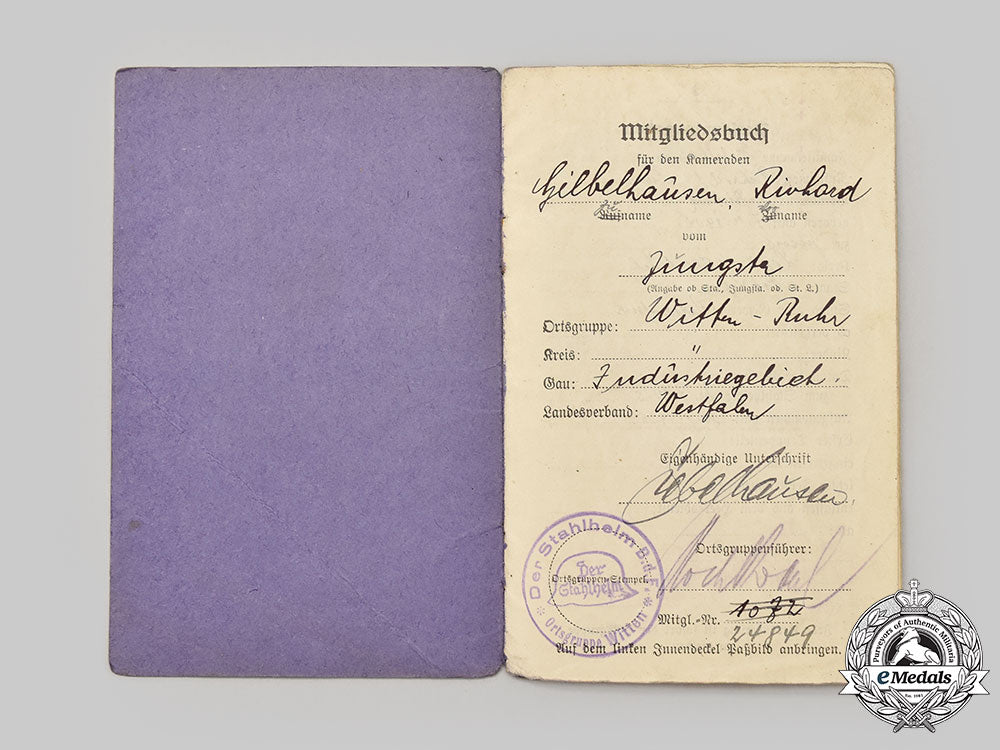 Mitgliedsbuch
für den Kameraden
Gilbelhausen, Richard
Zuname Vorname
vom
Jungsta
(Angabe ob Sta., Jungsta. od. St. L.)
Ortsgruppe: Witten-Ruhr
Kreis: "
Gau: Industriegebiet.
Landesverband: Westfalen
Eigenhändige Unterschrift
Ortsgruppenführer:
Der Stahlheim B.d.F.
Der Stahlhelm
Ortsgruppen-Stempel.
* Ortsgruppe Witten *
Mitgl.-Nr. 1072
24849
Auf dem linken Innendeckel Paßbild anbringen.
Purveyors of Authentic Militaria
eMedals